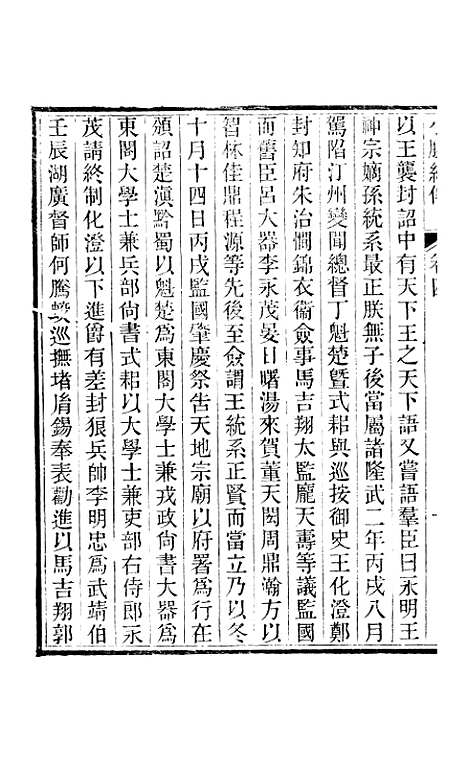 卷四
以王襲封詔中有天下王之天下語又嘗語羣臣曰永明王
神宗嫡孫統系最正朕無子後當屬諸隆武二年丙戌八月
駕陷汀州變聞總督丁魁楚暨式耜與巡按御史王化澄鄭
封知府朱治㵎錦衣衞僉事馬吉翔太監龐天壽等議監國
而舊臣呂大器李永茂晏日曙湯來賀董天閎周鼎瀚方以
智林佳鼎程源等先後至僉謂王統系正賢而當立乃以冬
十月十四日丙戌監國肇慶祭告天地宗廟以府署爲行在
頒詔楚滇黔蜀以魁楚爲東閣大學士兼戎政尙書大器爲
東閣大學士兼兵部尙書式耜以大學士兼吏部右侍郎永
茂請終制化澄以下進爵有差封狼兵帥李明忠爲武靖伯
壬辰湖廣督師何騰蛟巡撫堵胤錫奉表勸進以馬吉翔郭